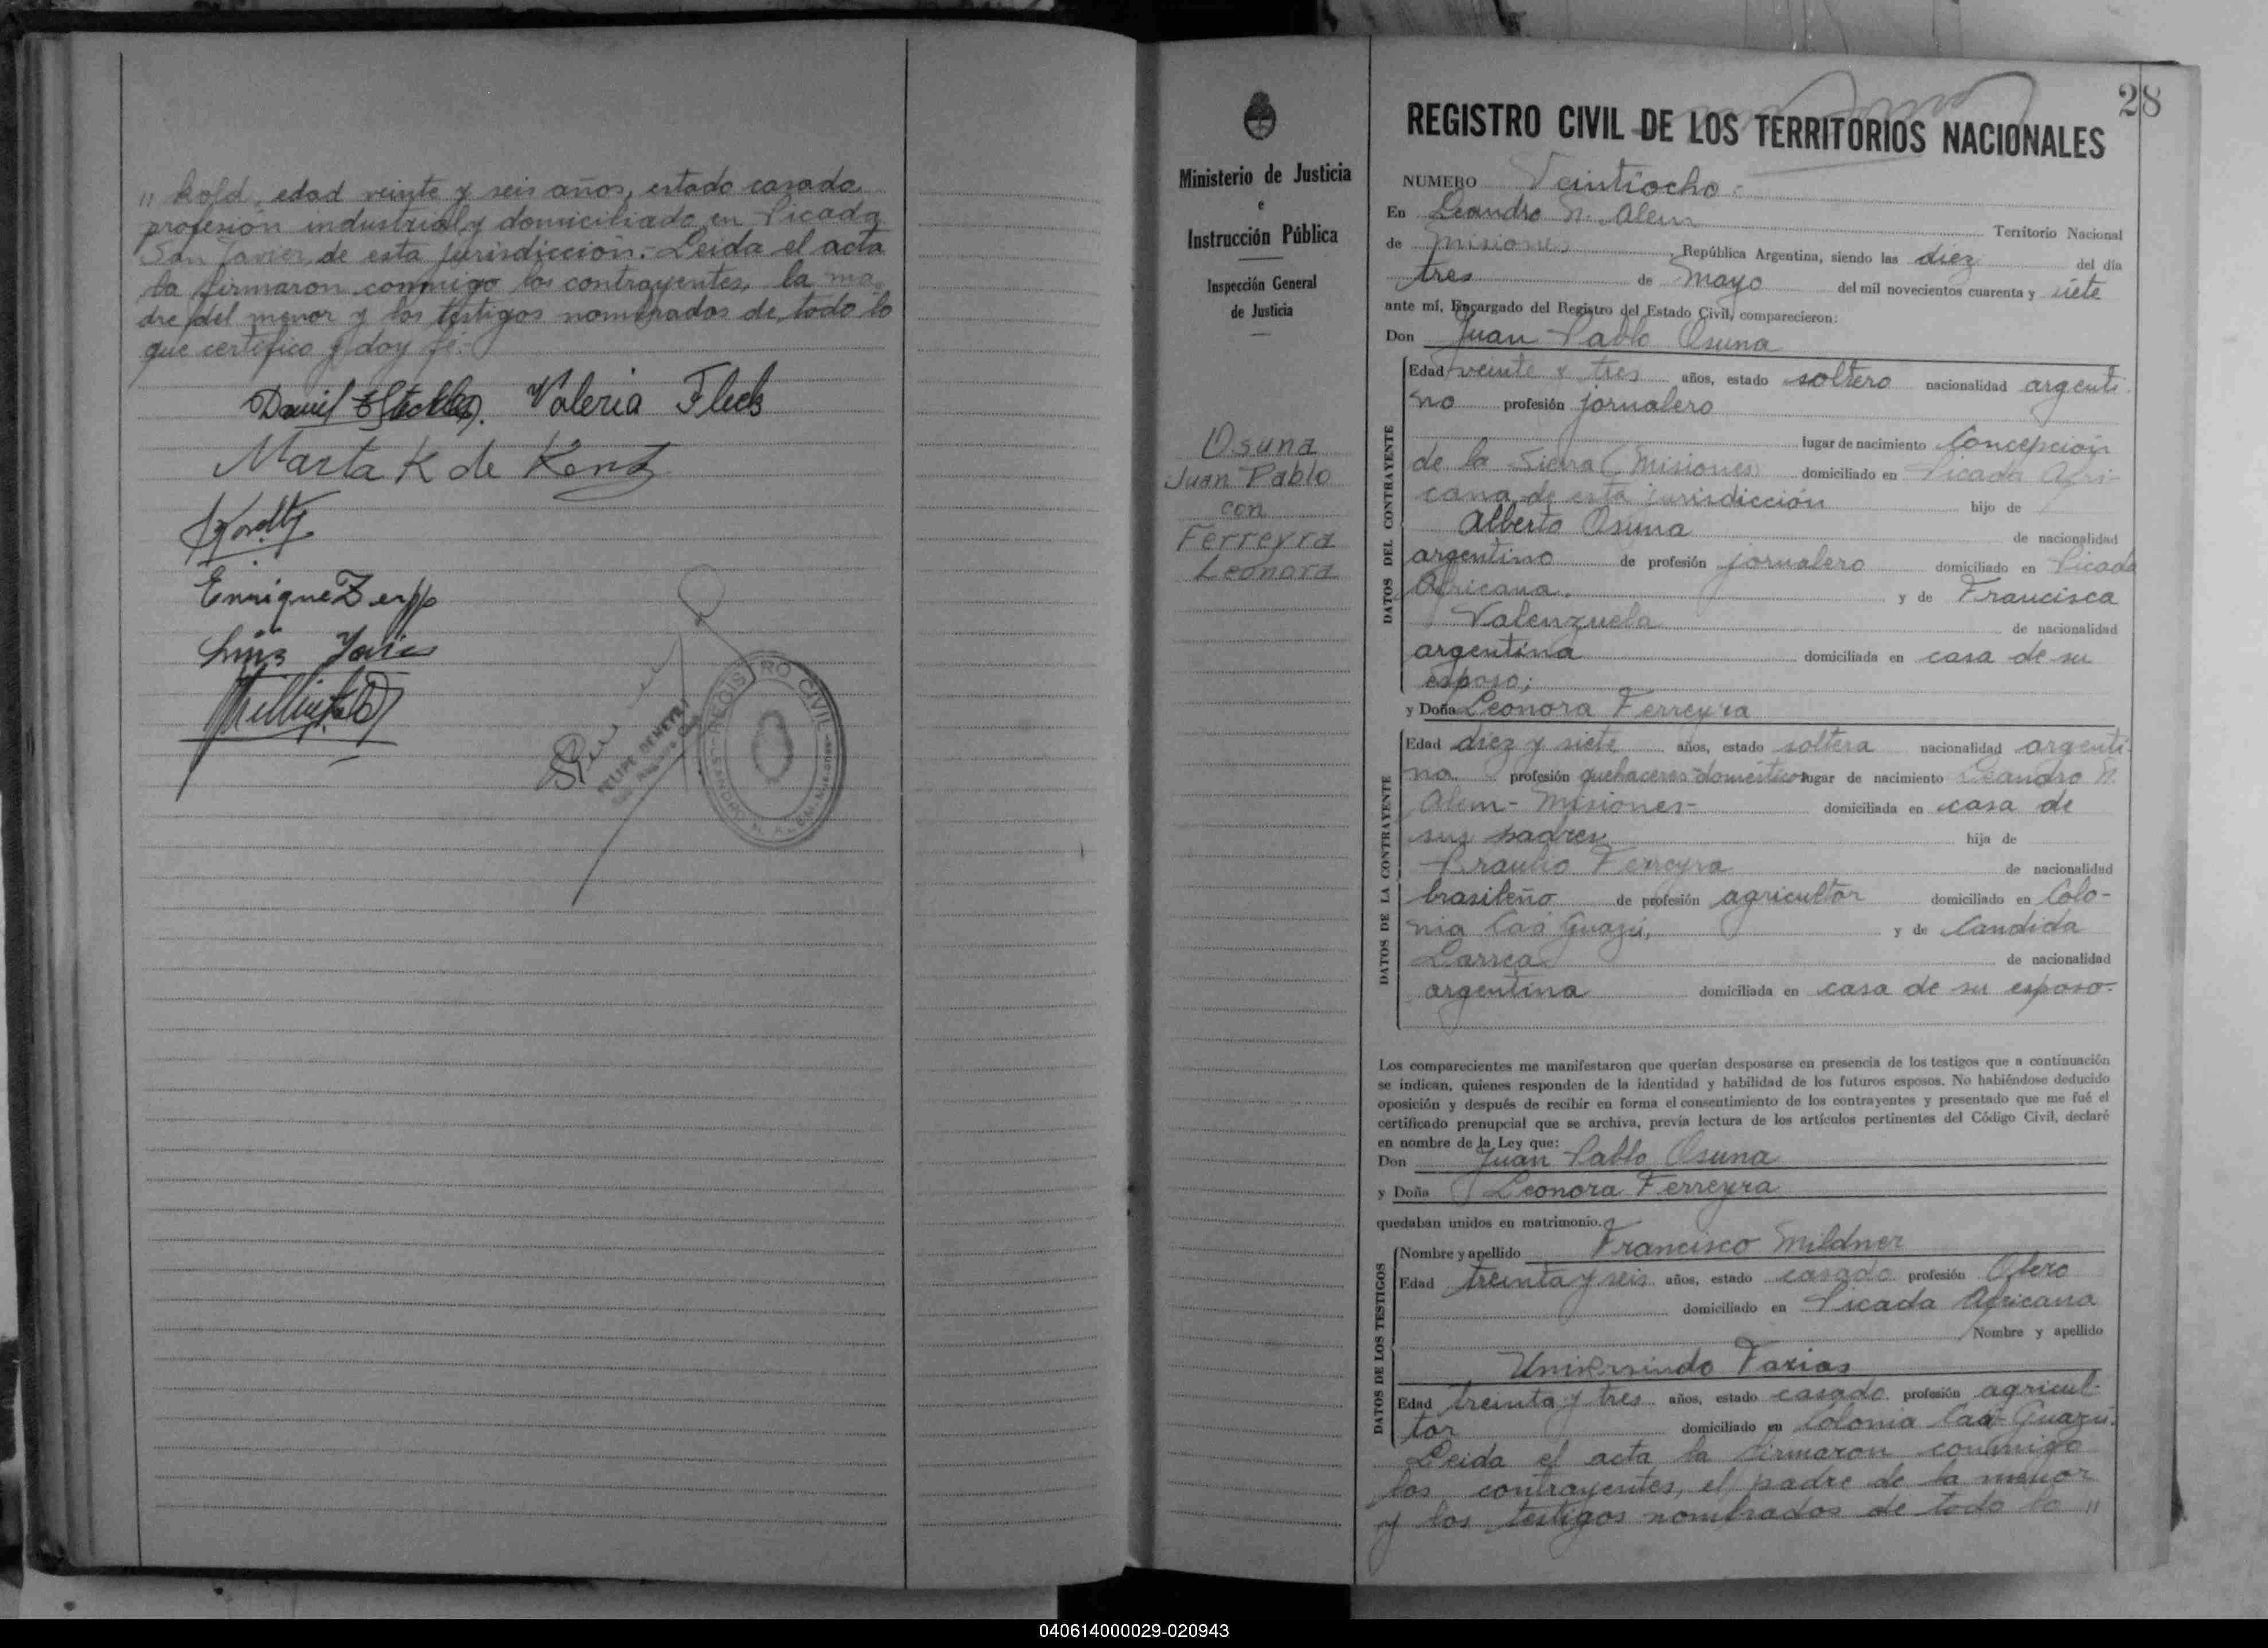 " kold, edad veinte y seis años, estado casado
profesión industrial y domiciliado en Picada
San Javier, de esta jurisdicción.- Leida el acta
la firmaron conmigo los contrayentes, la ma-
dre del menor y los testigos nombrados de todo lo
que certifico y doy fé.-
Valeria Fleck
Marta K de Kenz
Enrique Zerpp
Luis
REGISTRO CIVIL
LEANDRO N. ALEM
Ministerio de Justicia
e
Instrucción Pública
Inspección General
de Justicia
Osuna
Juan Pablo
con
Ferreyra
Leonora
28
REGISTRO CIVIL DE LOS TERRITORIOS NACIONALES
NUMERO Veintiocho.-
En Leandro N. Alem Territorio Nacional
de Misiones República Argentina, siendo las diez del día
tres de Mayo del mil novecientos cuarenta y siete
ante mí, Encargado del Registro del Estado Civil, comparecieron:
Don Juan Pablo Osuna
DATOS DEL CONTRAYENTE
Edad veinte y tres años, estado soltero nacionalidad argenti-
no profesión jornalero
lugar de nacimiento Concepción
de la Sierra (Misiones) domiciliado en Picada Afri-
cana de esta jurisdicción hijo de
Alberto Osuna de nacionalidad
argentino de profesión jornalero domiciliado en Picada
Africana. y de Francisca
Valenzuela de nacionalidad
argentina domiciliada en casa de su
esposo;
y Doña Leonora Ferreyra
DATOS DE LA CONTRAYENTE
Edad diez y siete años, estado soltera nacionalidad argenti-
na profesión quehaceres domésticos lugar de nacimiento Leandro N.
Alem - Misiones - domiciliada en casa de
sus padres hija de
Braulio Ferreyra de nacionalidad
brasileño de profesión agricultor domiciliado en Colo-
nia Caá Guazú, y de Candida
Larrea de nacionalidad
argentina domiciliada en casa de su esposo.-
Los comparecientes me manifestaron que querían desposarse en presencia de los testigos que a continuación
se indican, quienes responden de la identidad y habilidad de los futuros esposos. No habiéndose deducido
oposición y después de recibir en forma el consentimiento de los contrayentes y presentado que me fué el
certificado prenupcial que se archiva, previa lectura de los artículos pertinentes del Código Civil, declaré
en nombre de la Ley que:
Don Juan Pablo Osuna
y Doña Leonora Ferreyra
quedaban unidos en matrimonio.
DATOS DE LOS TESTIGOS
Nombre y apellido Francisco Mildner
Edad treinta y seis años, estado casado profesión Obrero
domiciliado en Picada Africana
Nombre y apellido
Farias
Edad treinta y tres años, estado casado profesión agricul-
tor domiciliado en Colonia Caá-Guazú.
Leida el acta la firmaron conmigo
los contrayentes, el padre de la menor
y los testigos nombrados de todo lo "
040614000029-020943